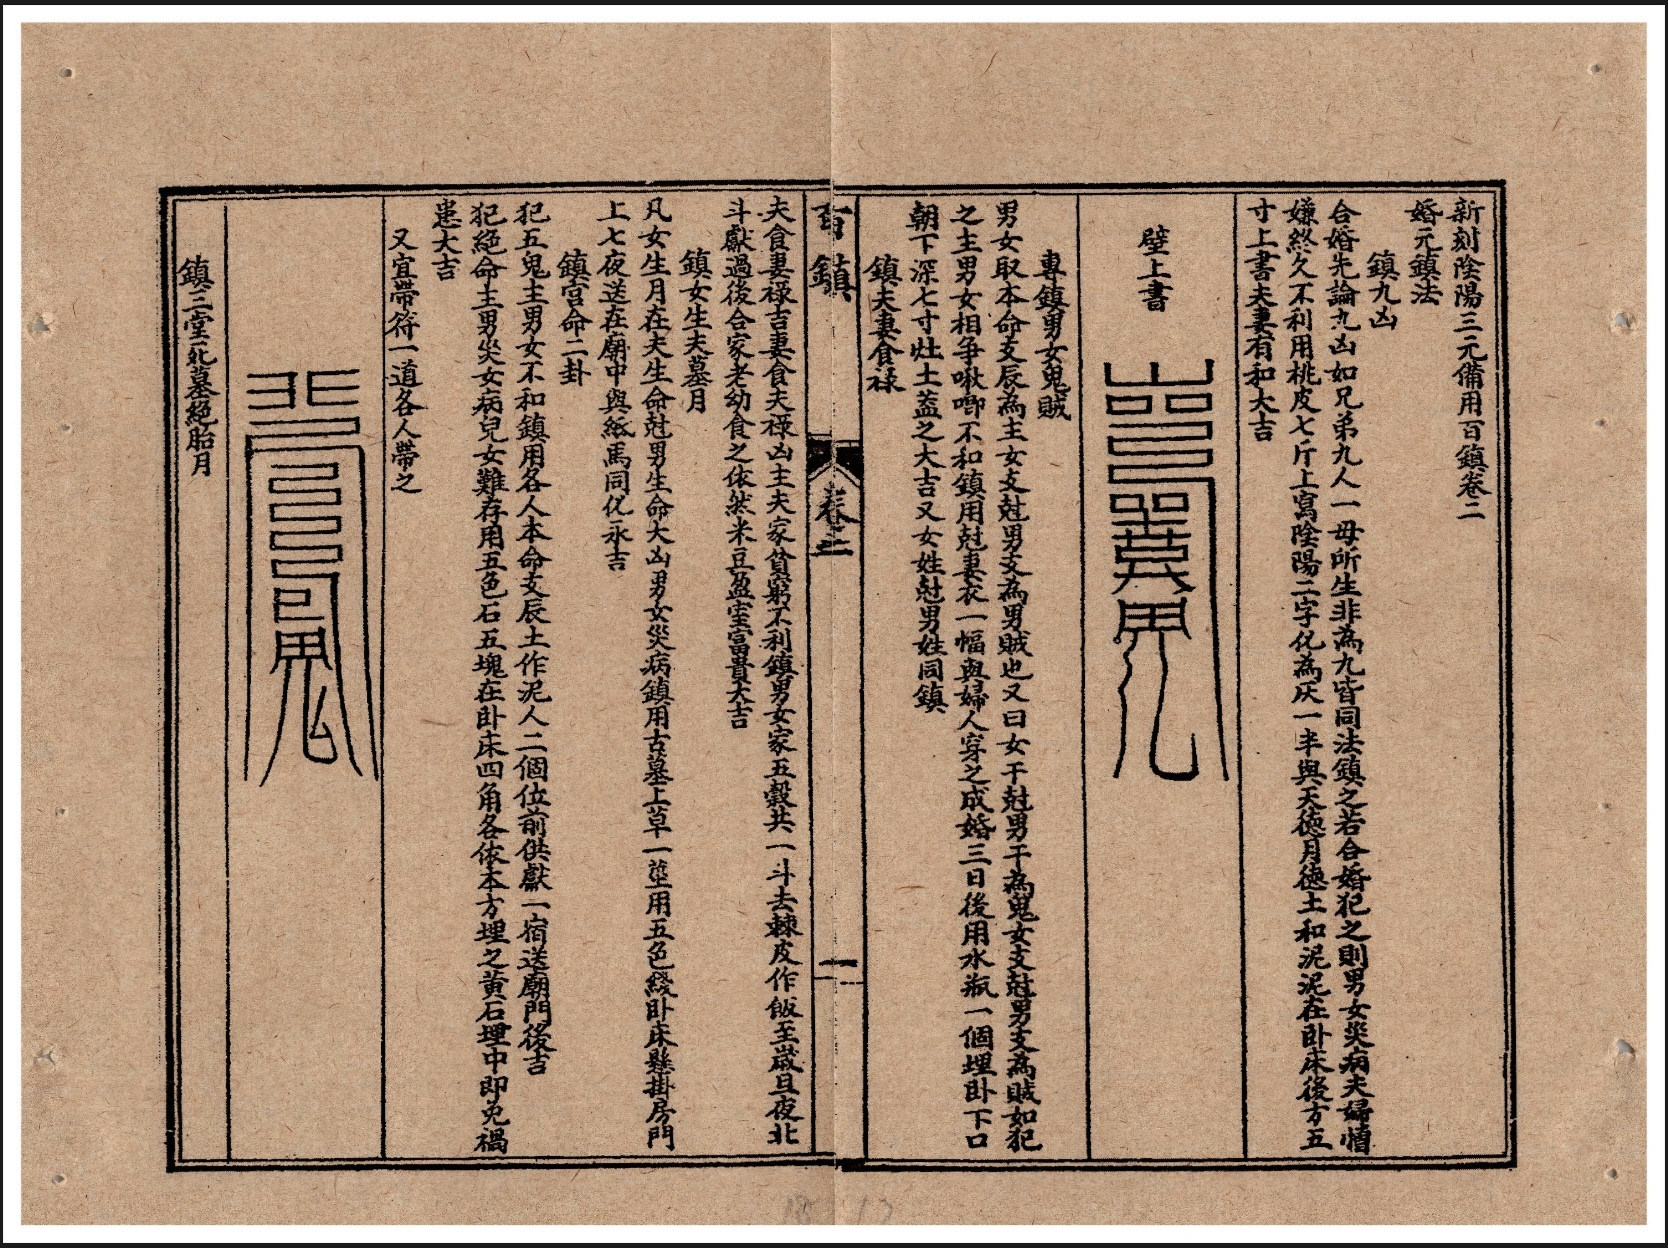 新刻陰陽三元備用百鎮卷二
婚元鎮法
鎮九凶
合婚先論九凶如兄弟九人一母所生非為九皆同法鎮之若合婚犯之則男女災病夫婦憎
嫌終久不利用桃皮七斤上寫陰陽二字化為灰一半與天德月德土和泥泥在卧床後方五
寸上書夫妻有和大吉
壁上書
專鎮男女鬼賊
男女取本命支辰為主女支尅男支為男賊也又曰女干尅男干為鬼女支尅男支為賊如犯
之主男女相争啾唧不和鎮用尅妻衣一幅與婦人穿之成婚三日後用水瓶一個埋卧下口
朝下深七寸灶土盖之大吉又女姓尅男姓同鎮
鎮夫妻食祿
百鎮 卷二 一
夫食妻祿吉妻食夫祿凶主夫家貧窮不利鎮男女家五穀共一斗去棘皮作飯至歲旦夜北
斗獻過後合家老幼食之依然米豆盈室富貴大吉
鎮女生夫墓月
凡女生月在夫生命尅男生命大凶男女災病鎮用古墓上草一莖用五色綫卧床懸掛房門
上七夜送在廟中與紙馬同化永吉
鎮宮命二卦
犯五鬼主男女不和鎮用各人本命支辰土作泥人二個位前供獻一宿送廟門後吉
犯絕命主男災女病兒女難存用五色石五塊在卧床四角各依本方埋之黄石埋中即免禍
患大吉
又宜帶符一道各人帶之
鎮三堂死墓絕胎月